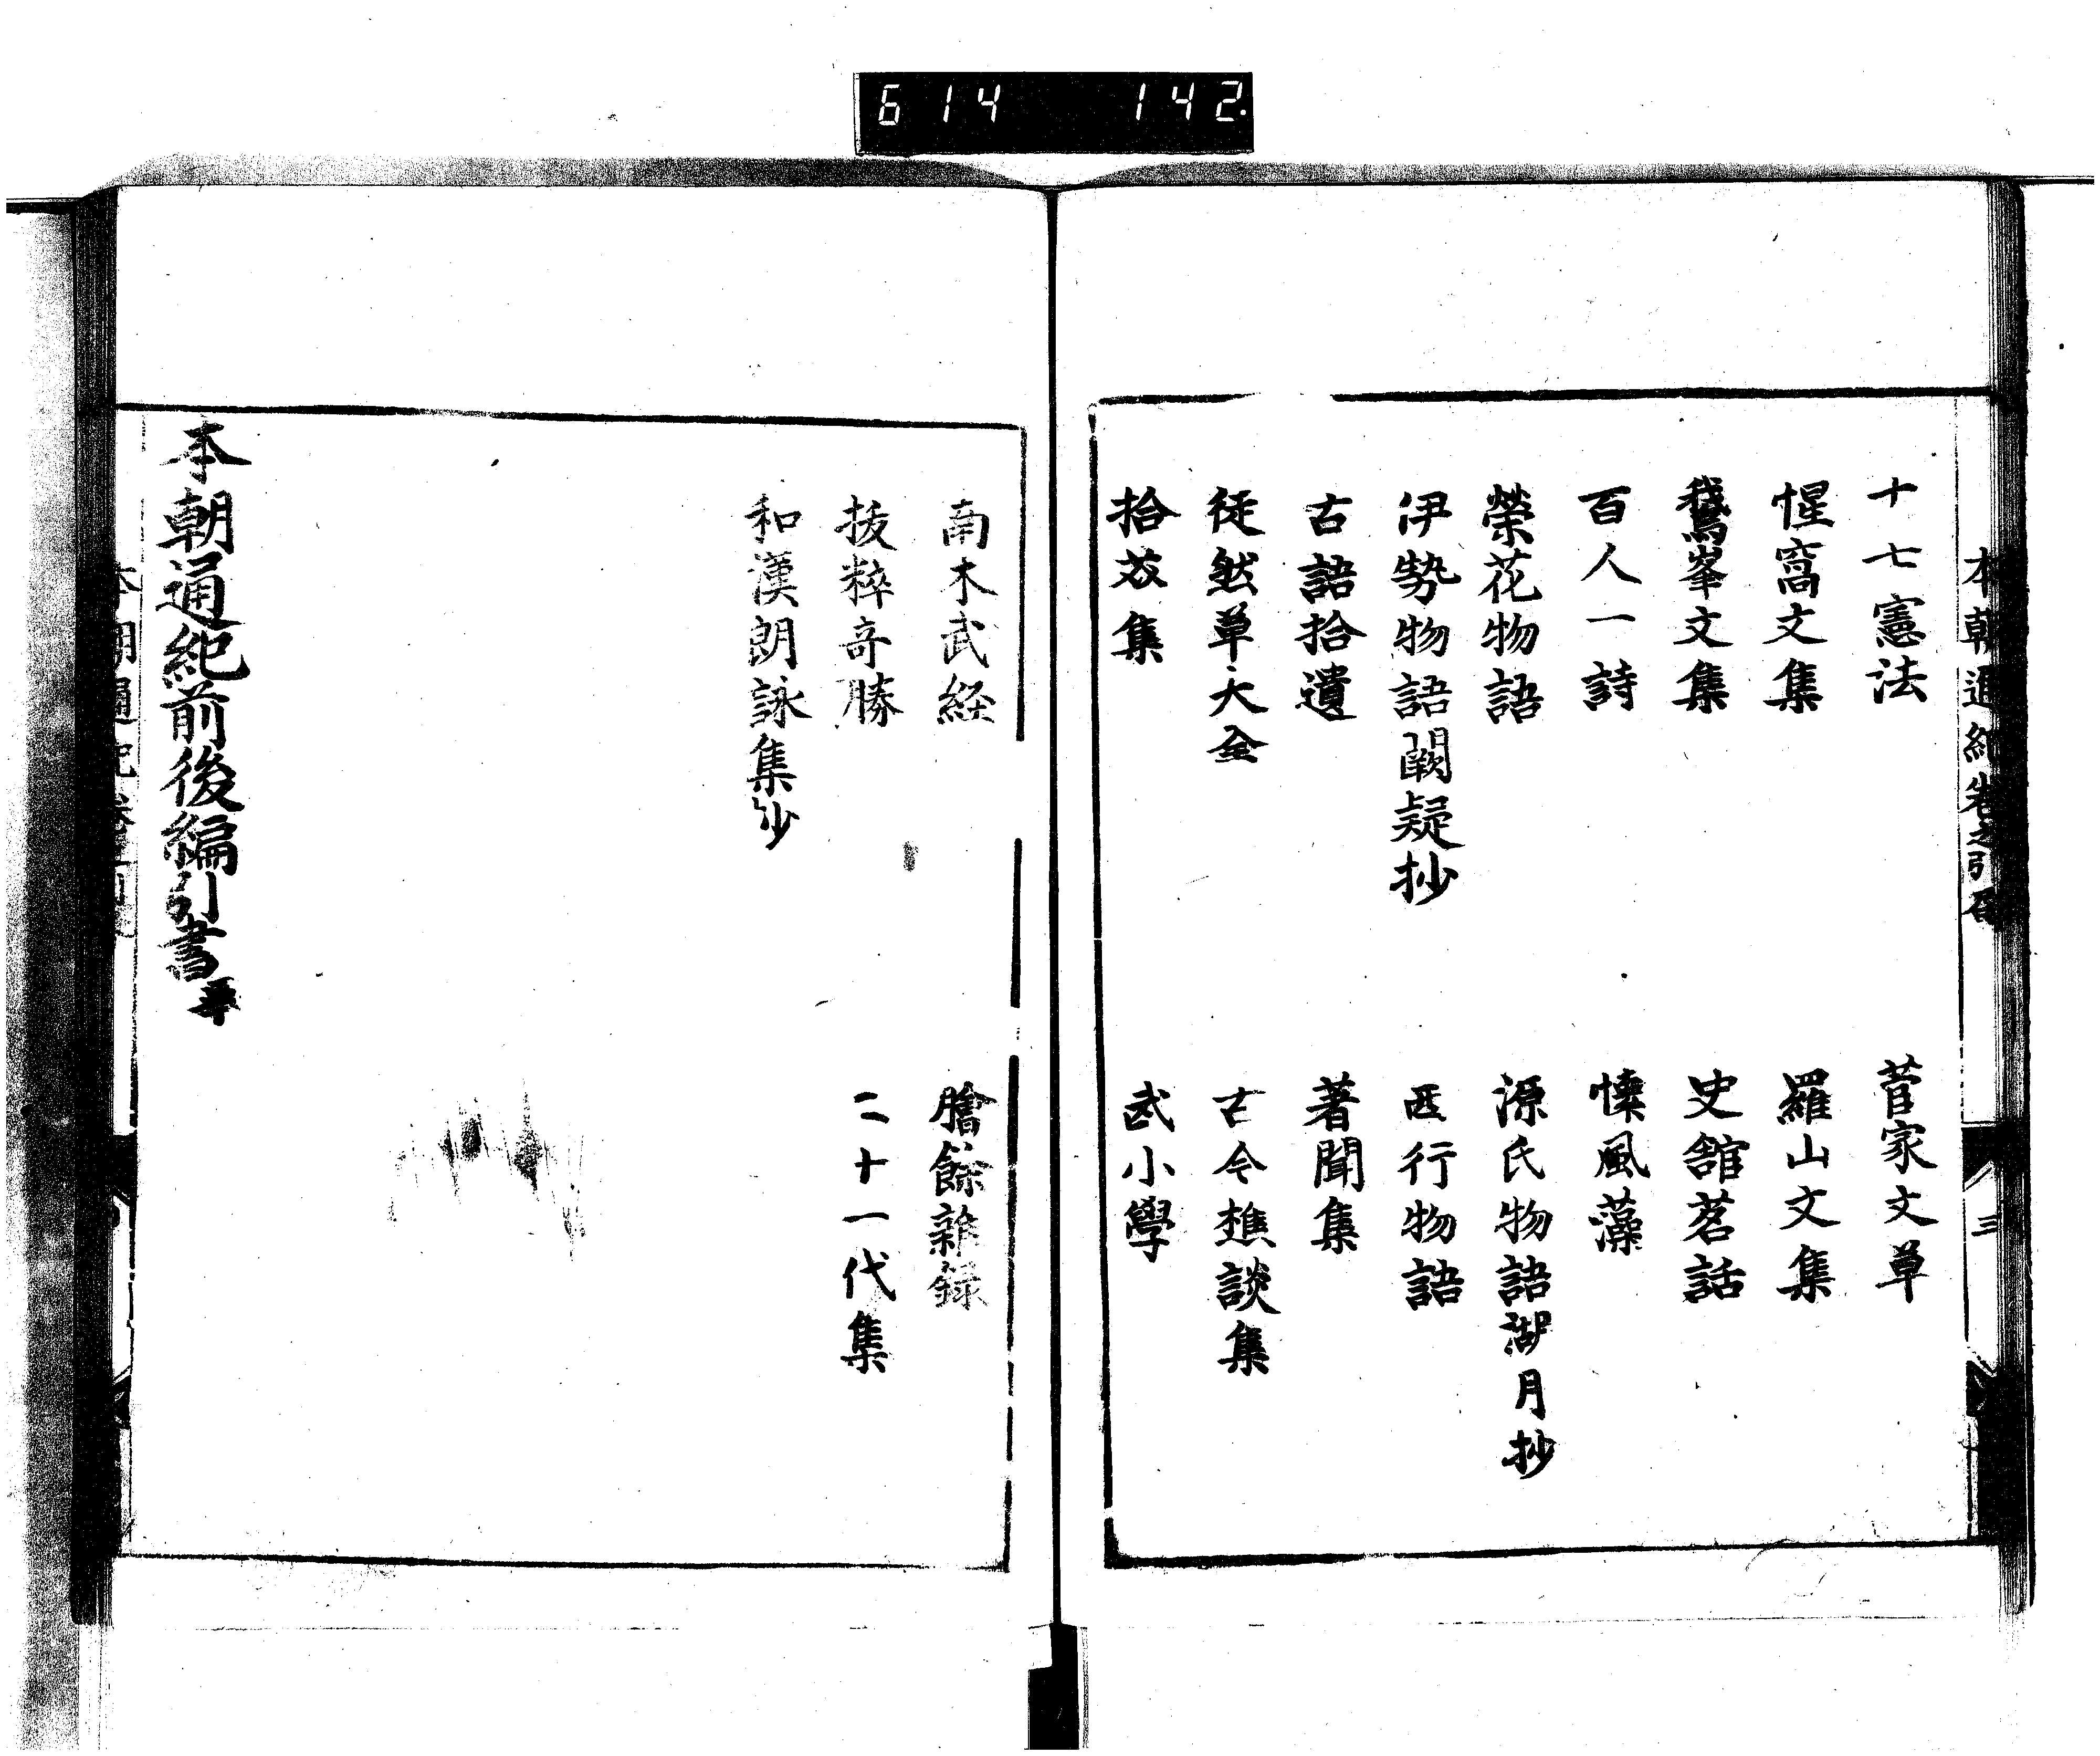 614 142
本朝通紀卷之引書 三
十七憲法 菅家文草
惺窩文集 羅山文集
鵞峯文集 史館茗話
百人一詩 懐風藻
榮花物語 源氏物語湖月抄
伊勢物語闕疑抄 西行物語
古語拾遺 著聞集
徒然草大全 古今樵談集
拾芥集 武小學
南木武経 膾餘雜録
抜粹奇勝 二十一代集
和漢朗詠集沙
本朝通紀前後編引書畢